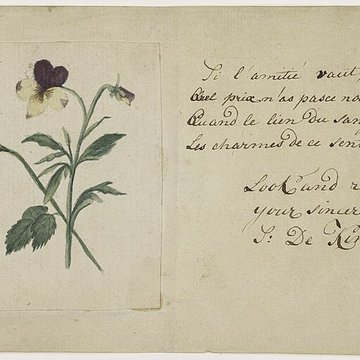 Si l'amitié vaut
quel prix n'as pasce no
Quand le lien du san
Les charmes de ce sent
Look and r
your sincer
S: De Kin